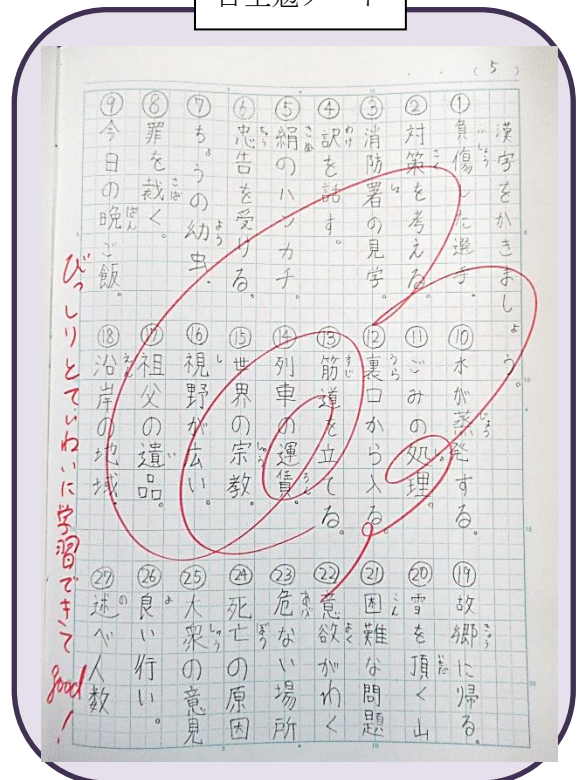 自主勉ノート
(5)
漢字をかきましょう。
①負傷した選手。
②対策を考える。
③消防署の見学。
④訳を話す。
⑤絹のハンカチ。
⑥忠告を受ける。
⑦ちょうの幼虫。
⑧罪を裁く。
⑨今日の晩ご飯。
⑩水が蒸発する。
⑪ごみの処理。
⑫裏口から入る。
⑬筋道を立てる。
⑭列車の運賃。
⑮世界の宗教。
⑯視野が広い。
⑰祖父の遺品。
⑱沿岸の地域。
⑲故郷に帰る。
⑳雪を頂く山
㉑困難な問題
㉒意欲がわく
㉓危ない場所
㉔死亡の原因
㉕大衆の意見
㉖良い行い。
㉗述べ人数
びっしりとていねいに学習できてgood!